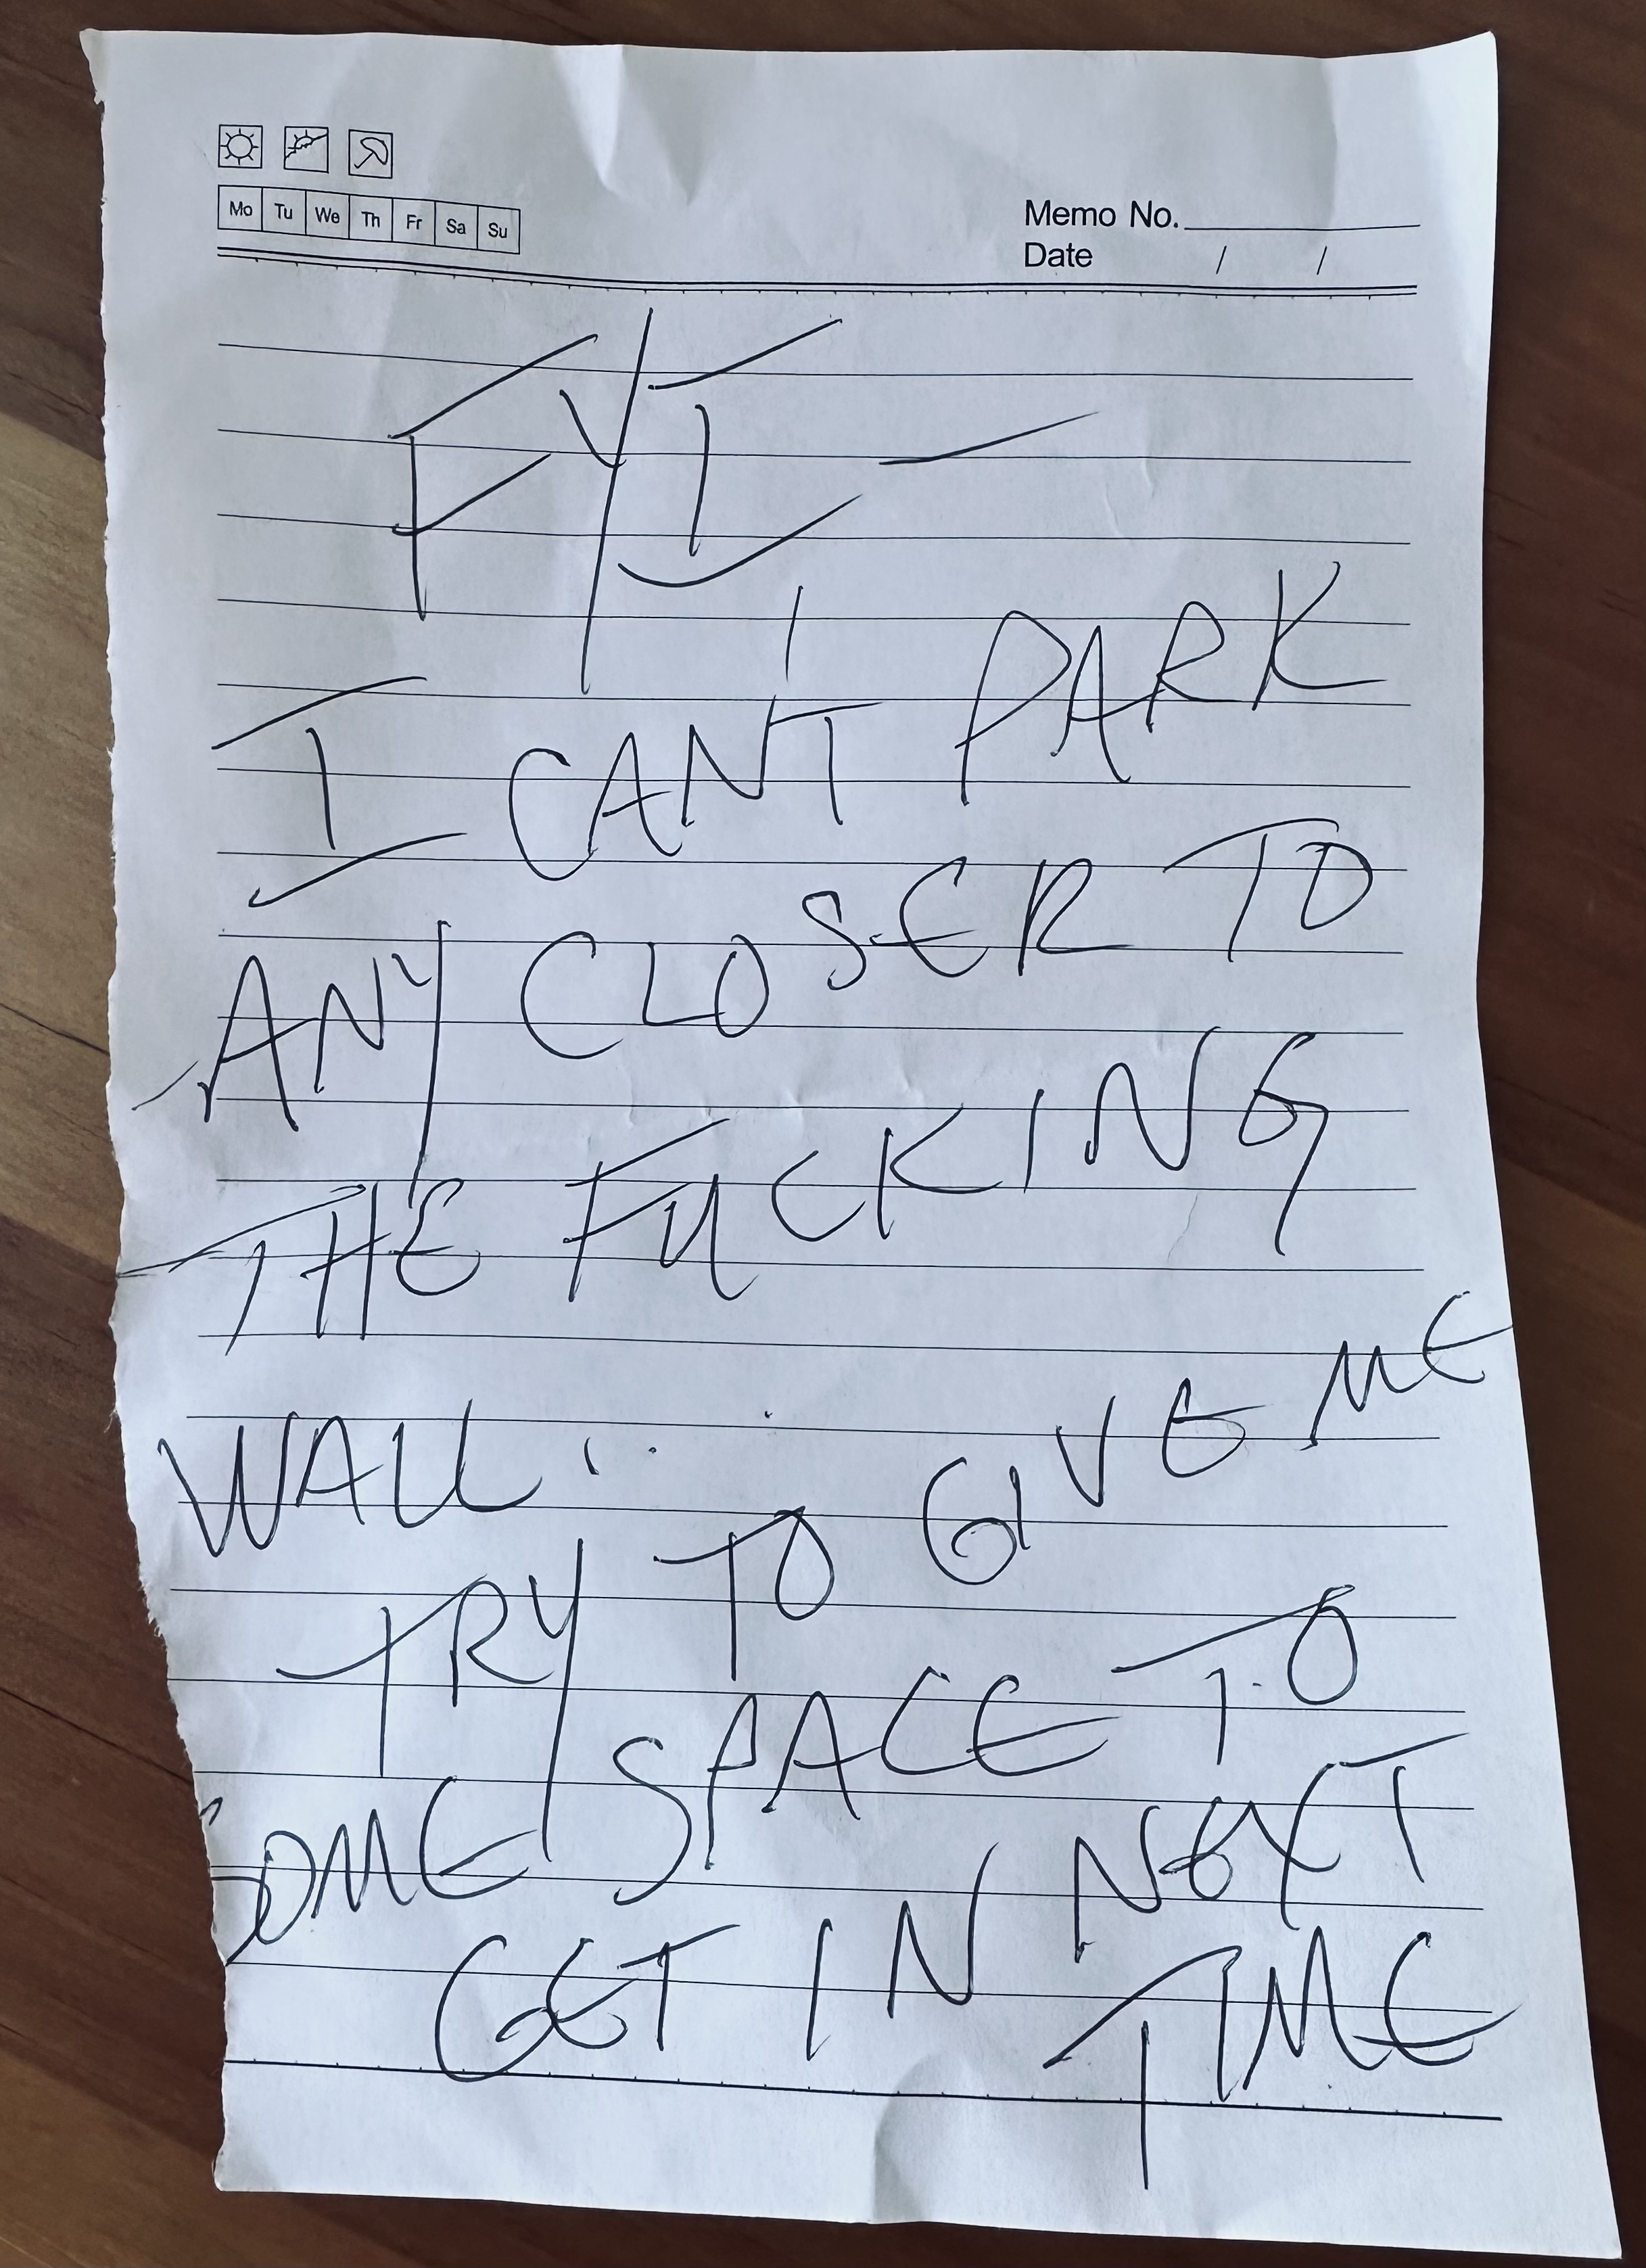 Mo Tu We Th Fr Sa Su
Memo No.
Date / /
FYI -
I CAN'T PARK
ANY CLOSER TO
THE FUCKING
WALL ...
TRY TO GIVE ME
SOME SPACE TO
GET IN NEXT
TIME